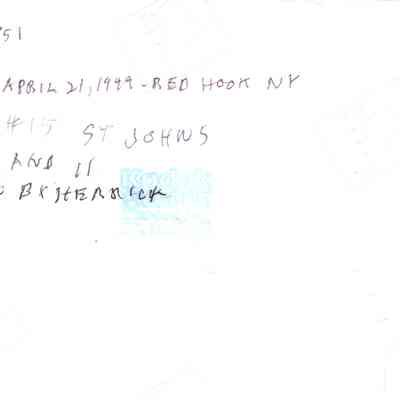 51
APRIL 21, 1949 - RED HOOK NY
#15 ST JOHNS
AND 11
BY HERRICK